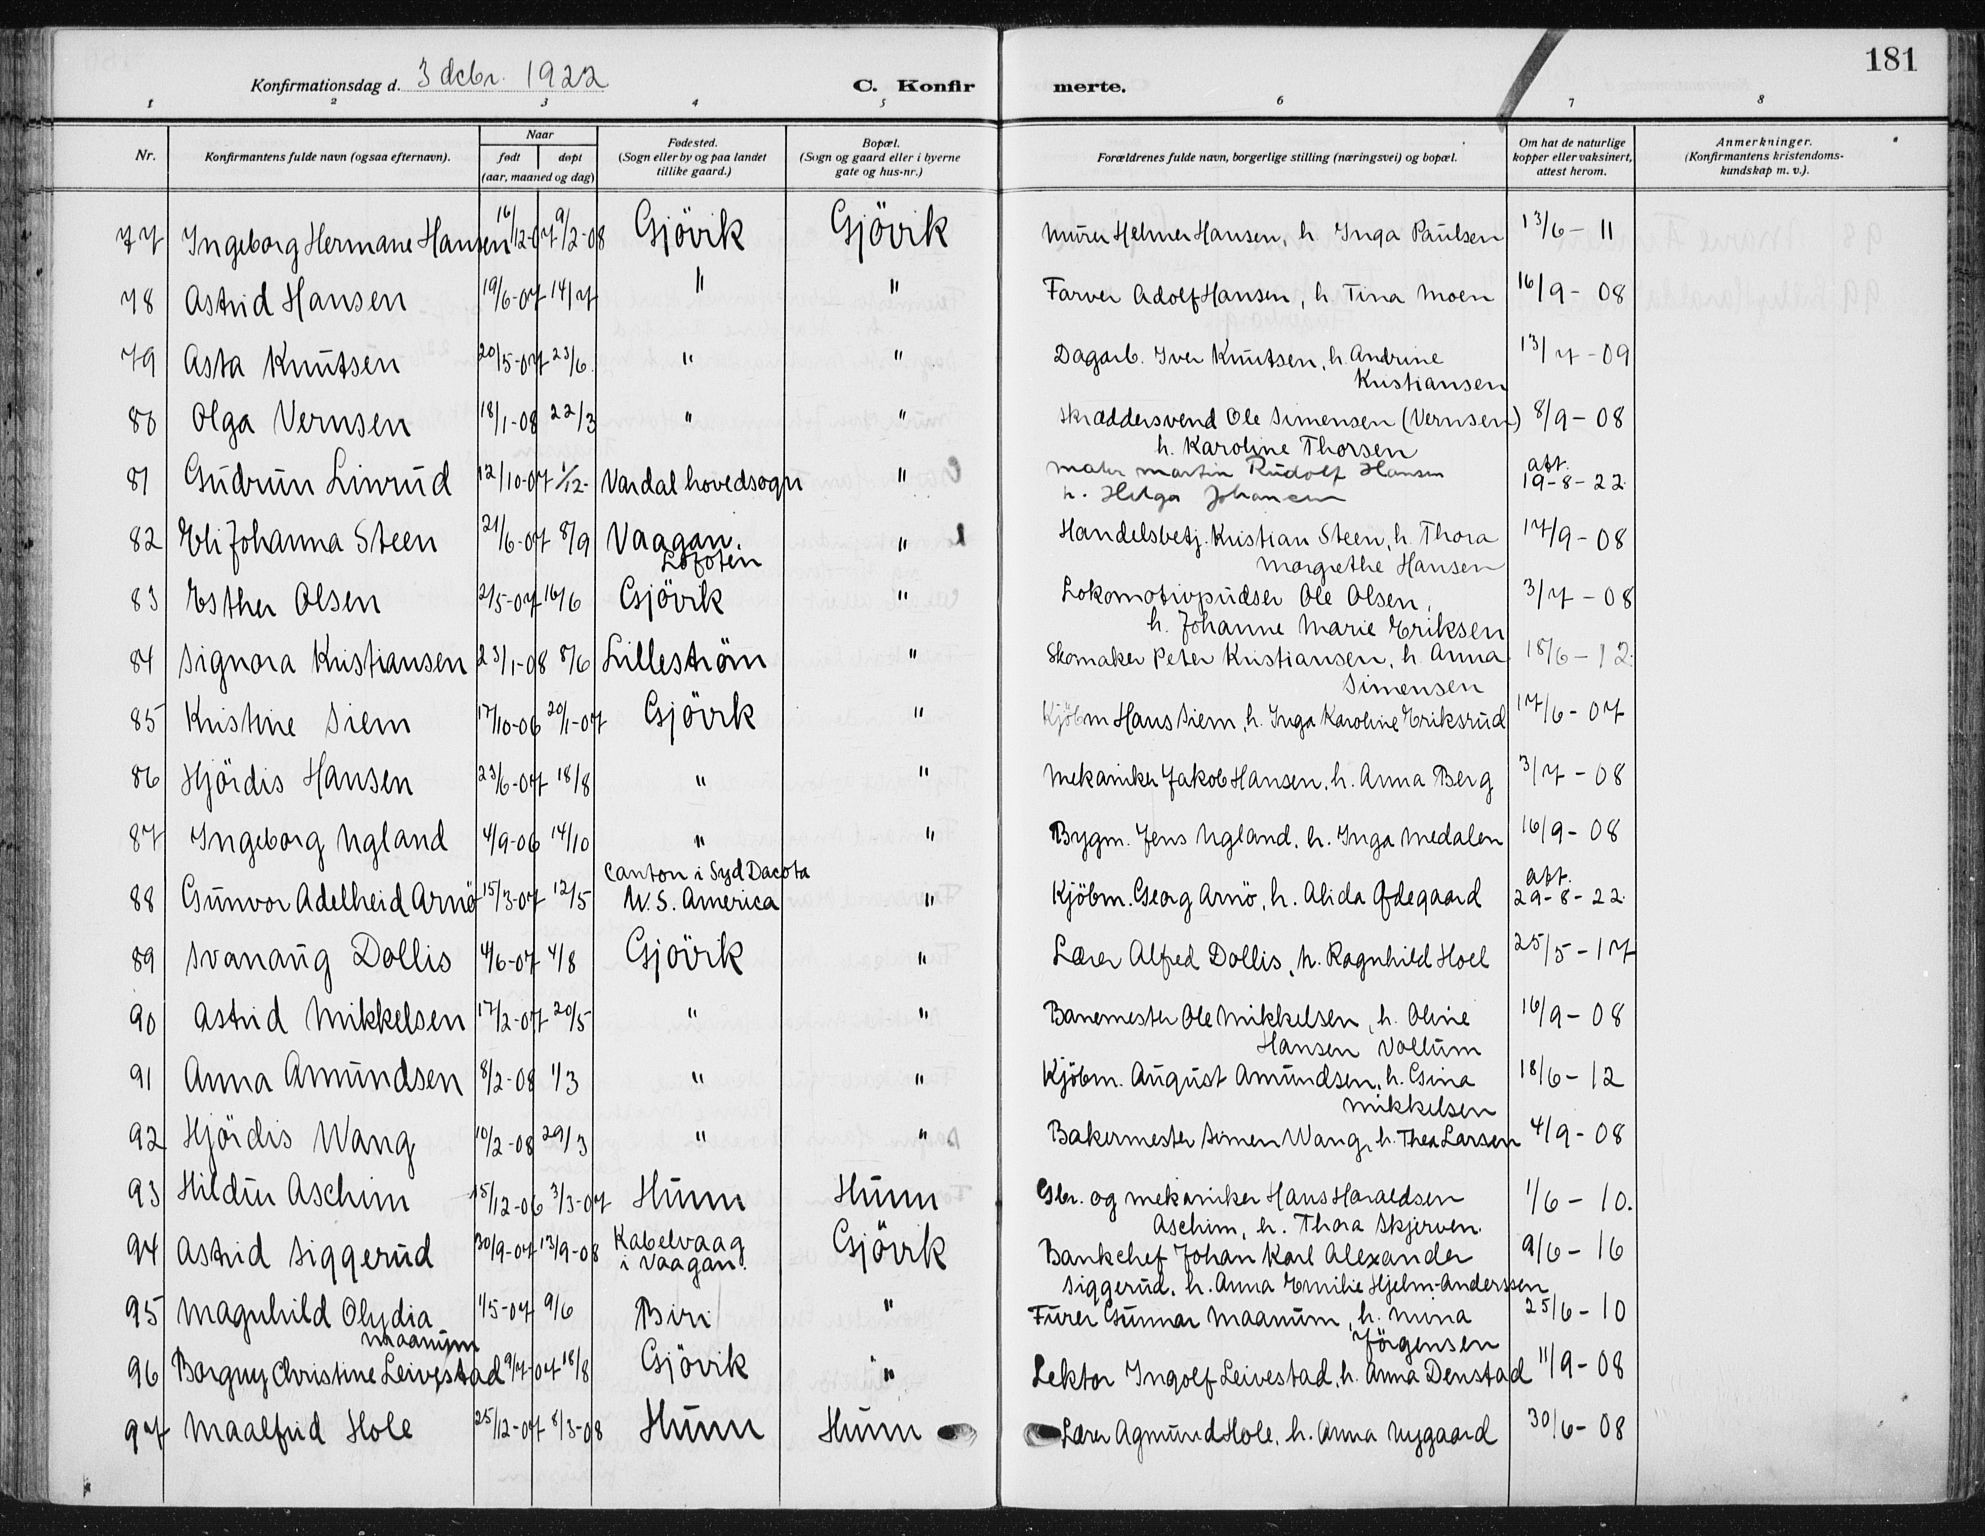 181
Konfirmationsdag d. 3 debr. 1922 C. Konfir merte.
1 2 3 4 5 6 7 8
Nr. Konfirmantens fulde navn (ogsaa efternavn). Naar født døpt (aar, maaned og dag) Fødested. (Sogn eller by og paa landet tillike gaard.) Bopæl. (Sogn og gaard eller i byerne gate og hus-nr.) Forældrenes fulde navn, borgerlige stilling (næringsvei) og bopæl. Om hat de naturlige kopper eller vaksinert, attest herom. Anmerkninger. (Konfirmantens kristendoms-kundskap m. v.).
77 Ingeborg Hermane Hansen 16/12-07 9/2-08 Gjövik Gjövik Murer Helmer Hansen, h. Inga Paulsen 13/6-11
78 Astrid Hansen 19/6-07 14/7 " " Farver Adolf Hansen, h. Tina Moen 16/9-08
79 Asta Knutsen 20/5-07 23/6. " " Dagarb. Iver Knutsen, h. Andrine
Kristiansen 13/7-09
80 Olga Vernsen 18/1-08 22/3 " " Skræddersvend Ole Simensen (Vernsen)
h. Karoline Thorsen 8/9-08
81 Gudrun Linrud 12/10-07 1/12- Vardal hovedsogn " Maler Martin Rudolf Hansen
h. Helga Johansen att. 19-8-22
82 Eli Johanna Steen 21/6-07 8/9 Vaagan.
Lofoten " Handelsbetj. Kristian Steen, h. Thora
Margrethe Hansen 17/9-08
83 Esther Olsen 2/5-07 16/6 Gjövik " Lokomotivpudser Ole Olsen,
h. Johanne Marie Eriksen 3/7-08
84 Signora Kristiansen 23/1-08 8/6 Lilleström " Skomaker Peter Kristiansen, h. Anna
Simensen 18/6-12.
85 Kristine Siem 17/10-06 20/1-07 Gjövik " Kjöbm Hans Siem, h. Inga Karoline Eriksrud 17/6-07
86 Hjördis Hansen 23/6-07 18/8 " " Mekaniker Jakob Hansen, h. Anna Berg 3/7-08
87 Ingeborg Ugland 4/9-06 14/10 " " Bygm. Jens Ugland, h. Inga Medalen 16/9-08
88 Gunvor Adelheid Arnö 15/3-07 12/5 Canton i Syd Dacota
U.S. America " Kjöbm. Georg Arnö, h. Alida Ødegaard att. 29-8-22.
89 Svanaug Dollis 4/6-07 4/8 Gjövik " Lærer Alfred Dollis, h. Ragnhild Hoel 25/5-17
90 Astrid Mikkelsen 17/2-07 20/5 " " Banemester Ole Mikkelsen, h. Oline
Hansen Vollum 16/9-08
91 Anna Amundsen 8/2-08 1/3 " " Kjöbm. August Amundsen, h. Gina
Mikkelsen 18/6-12
92 Hjördis Wang 10/2-08 29/3 " " Bakermester Simen Wang, h. Thea Larsen 4/9-08
93 Hildur Aschim 15/12-06 3/3-07 Hunn Hunn Gbr. og mekaniker Hans Haraldsen
Aschim, h. Thora Skjerven. 1/6-10.
94 Astrid Siggerud 30/9-07 13/9-08 Kabelvaag
i Vaagan. Gjövik Bankchef Johan Karl Alexander
Siggerud, h. Anna Emilie Hjelm-Anderssen 9/6-16
95 Magnhild Olydia
Maanum 1/5-07 9/6 Biri " Furer Gunnar Maanum, h. Mina
Jörgensen 25/6-10
96 Borgny Christine Leivestad 9/7-07 18/8 Gjövik " Lektor Ingolf Leivestad, h. Anna Denstad 11/9-08
97 Maalfrid Hole 25/12-07 8/3-08 Hunn Hunn Lærer Agmund Hole, h. Anna Nygaard 30/6-08